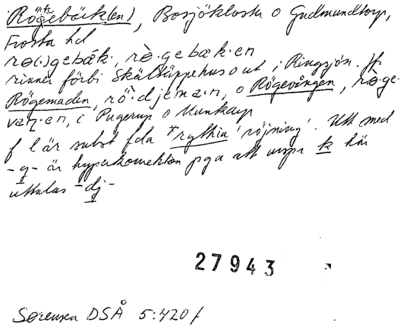 Rögebäck(en), Bosjökloster o Gudmundtorp,
Frosta hd
rö(·)gebäk, rò·gebæk·en
rinner förbi Skältüppehus o ut i Ringsjön. Jfr
Rögemaden, rö·djəma·n, o Rögevången, rö·ge
vaŋ·en, i Pugerup o Munkarp
f l är subst fda *rythia 'röjning'. Utt med
-g- är hyperkorrektion pga att urspr k här
uttalas -dj-
27943
Sørensen DSÅ 5:420 f